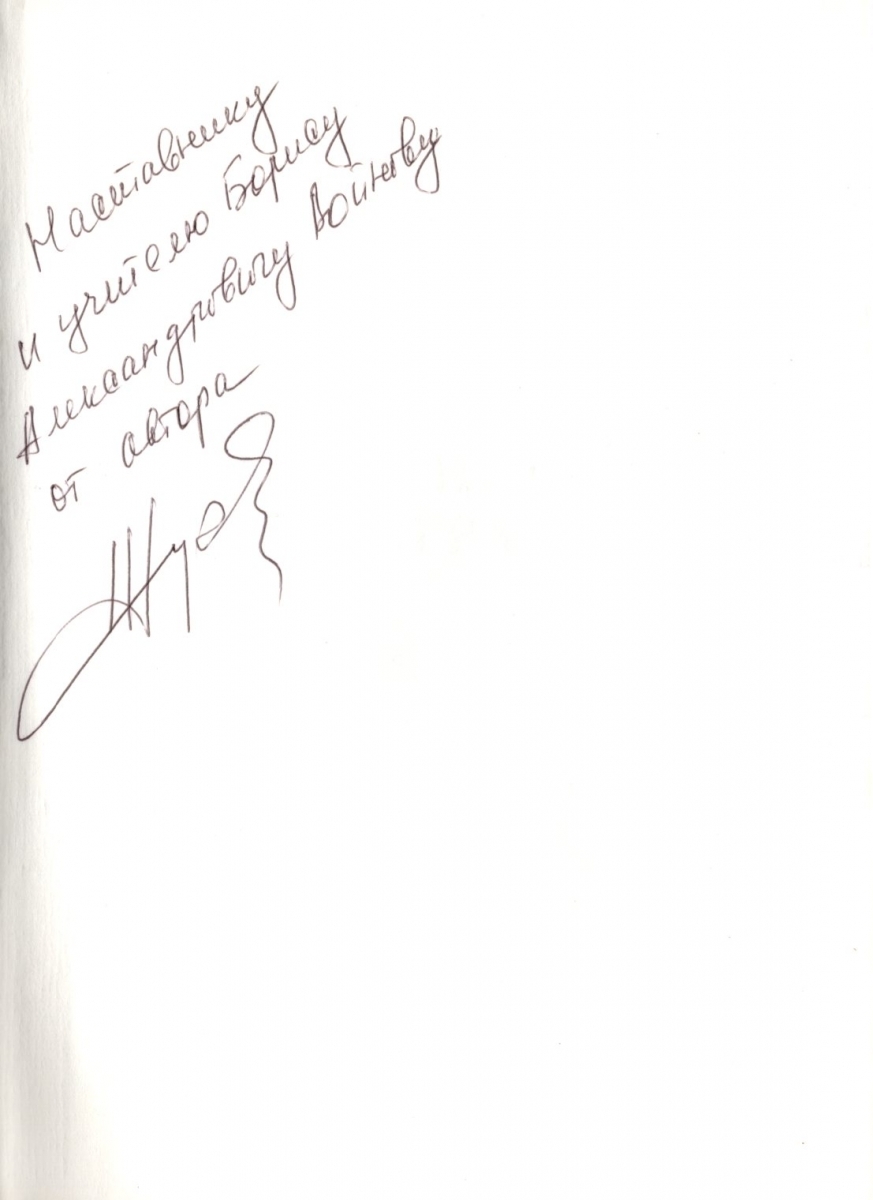 Наставнику
и учителю Борису
Александровичу Войнову
от автора